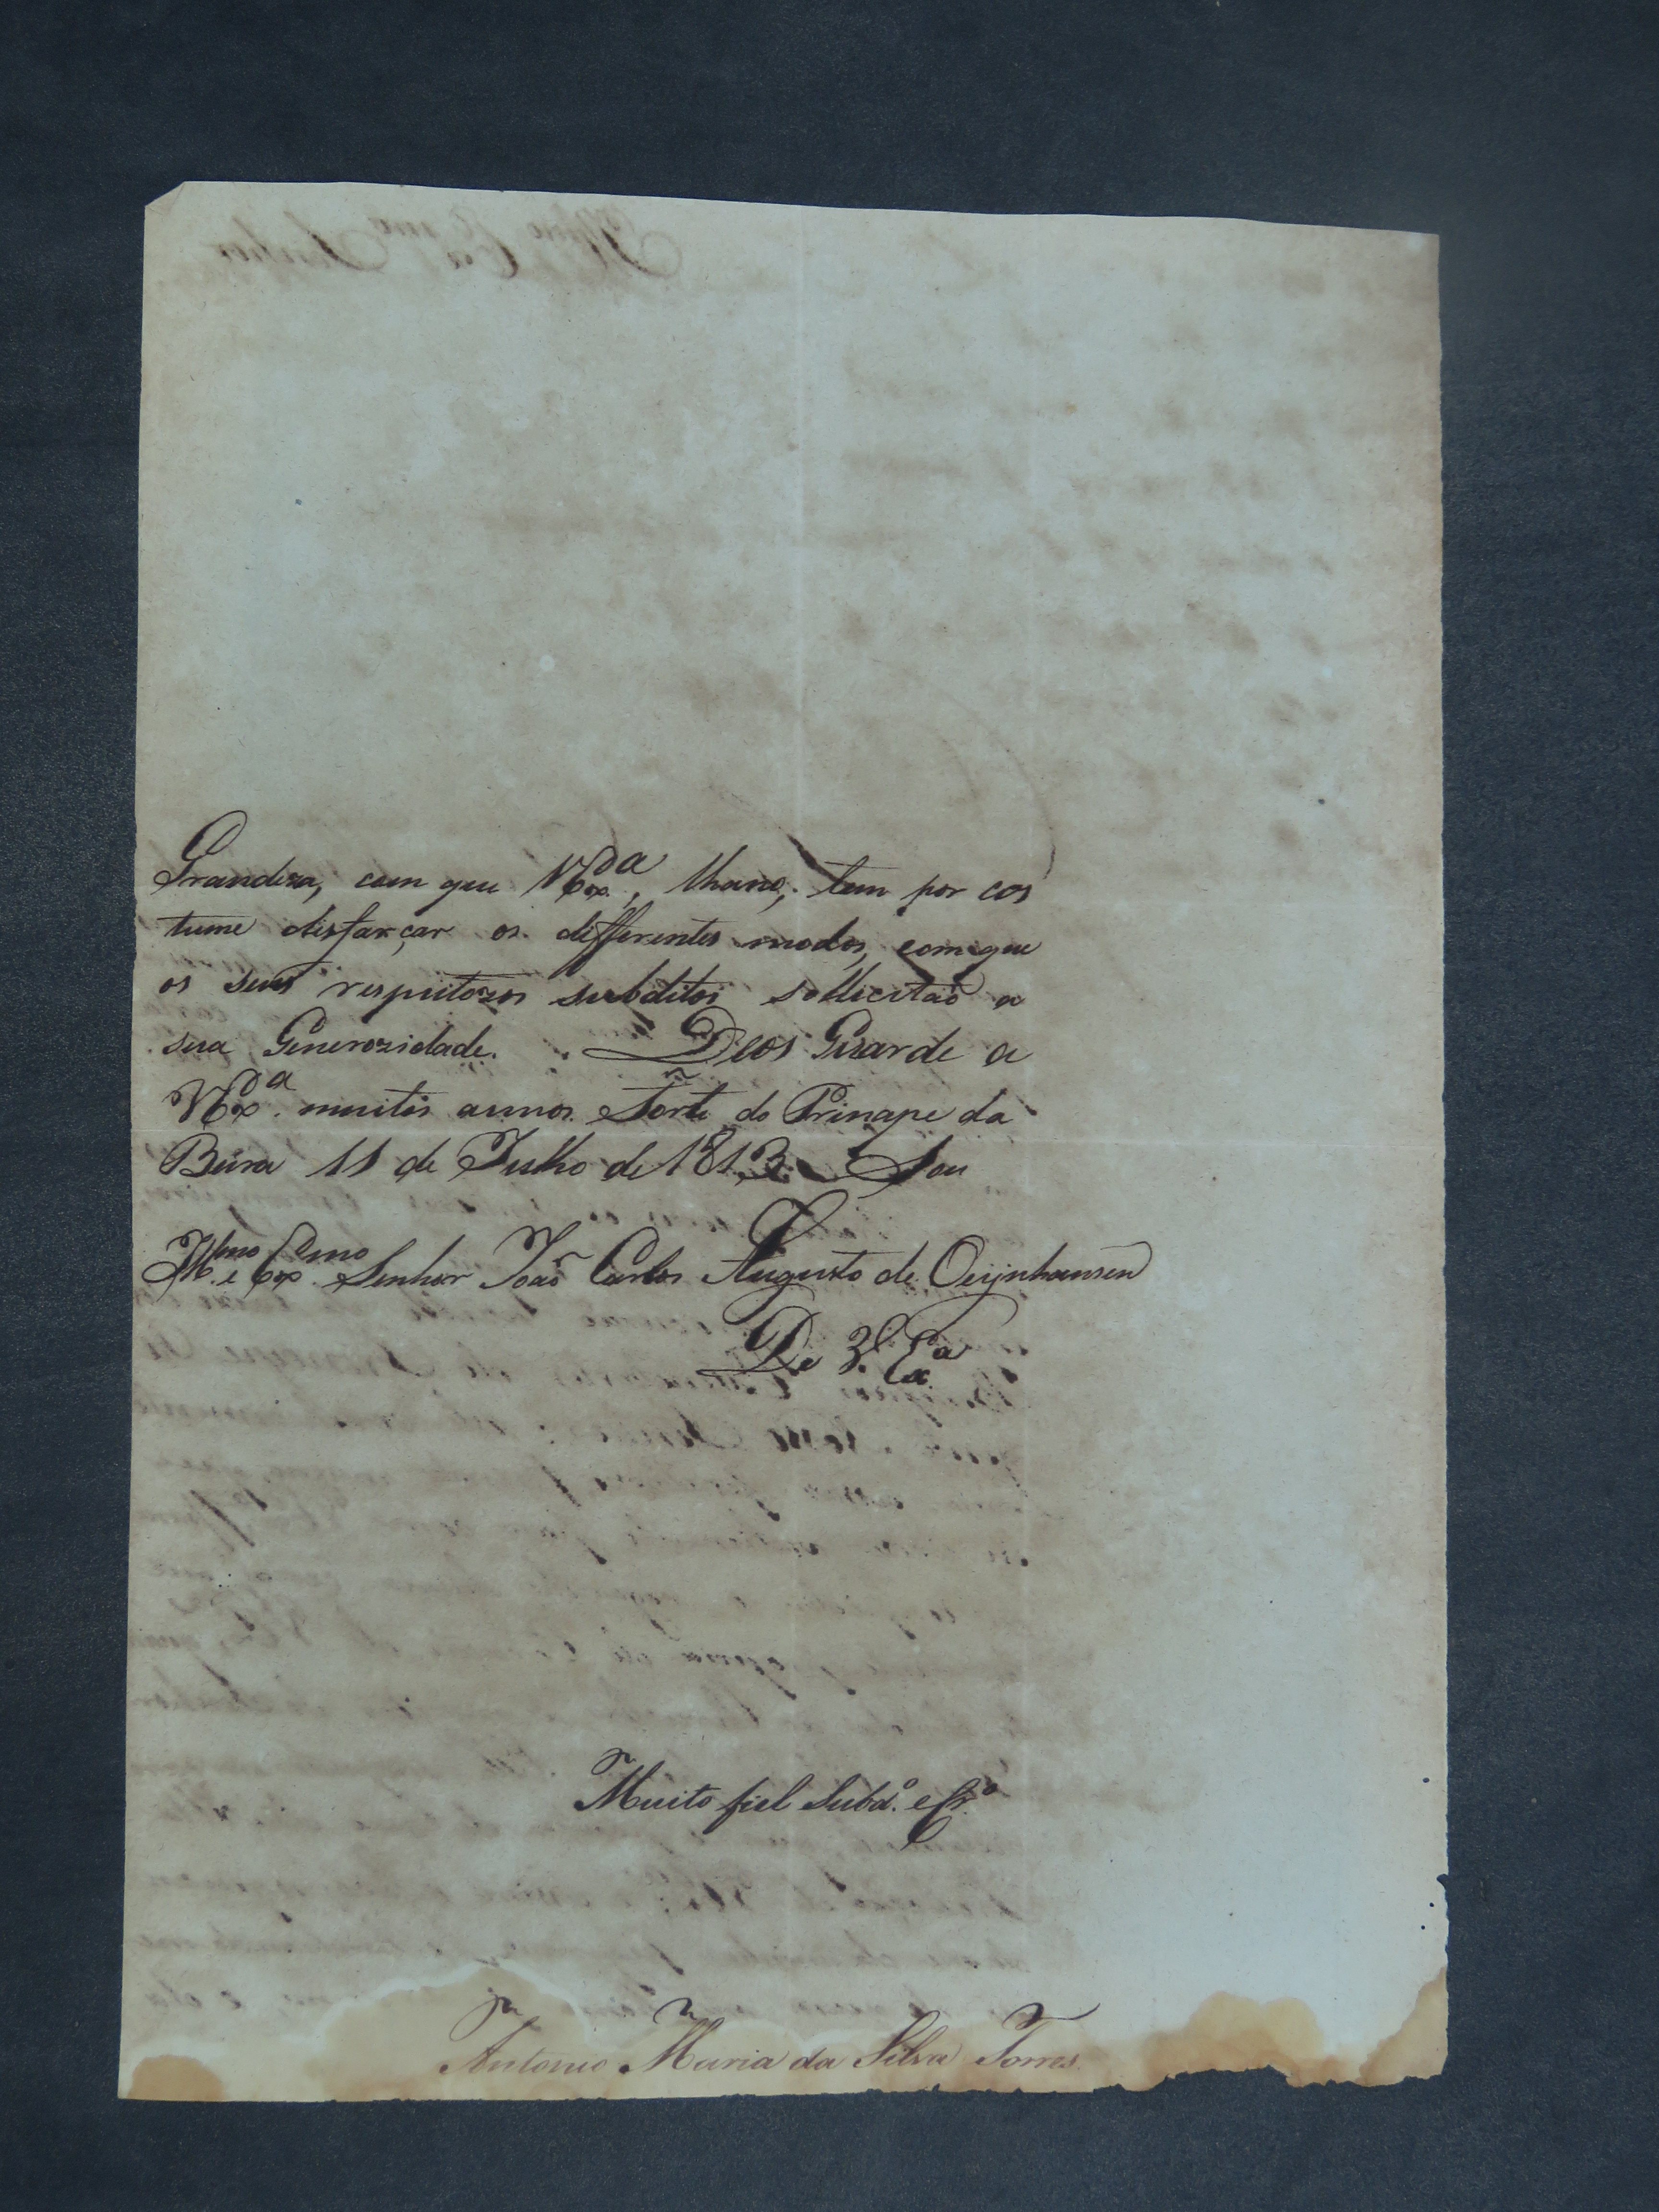 Grandeza, com que V Ex.ª, lhano, tem por cos
tume disfarçar os differentes modos, com que
os seus respeitozos subditos sollicitaõ a
sua Generozidade. Deos Guarde a
V Ex.ª muitos annos. Forte do Principe da
Beira 11 de Julho de 1813. Sou
Ill.mo e Ex.mo Senhor Joaõ Carlos Augusto de Oeijnhausen
De V. Ex.ª
Muito fiel Subd.º e Cr.º
Antonio Maria da Silva Torres